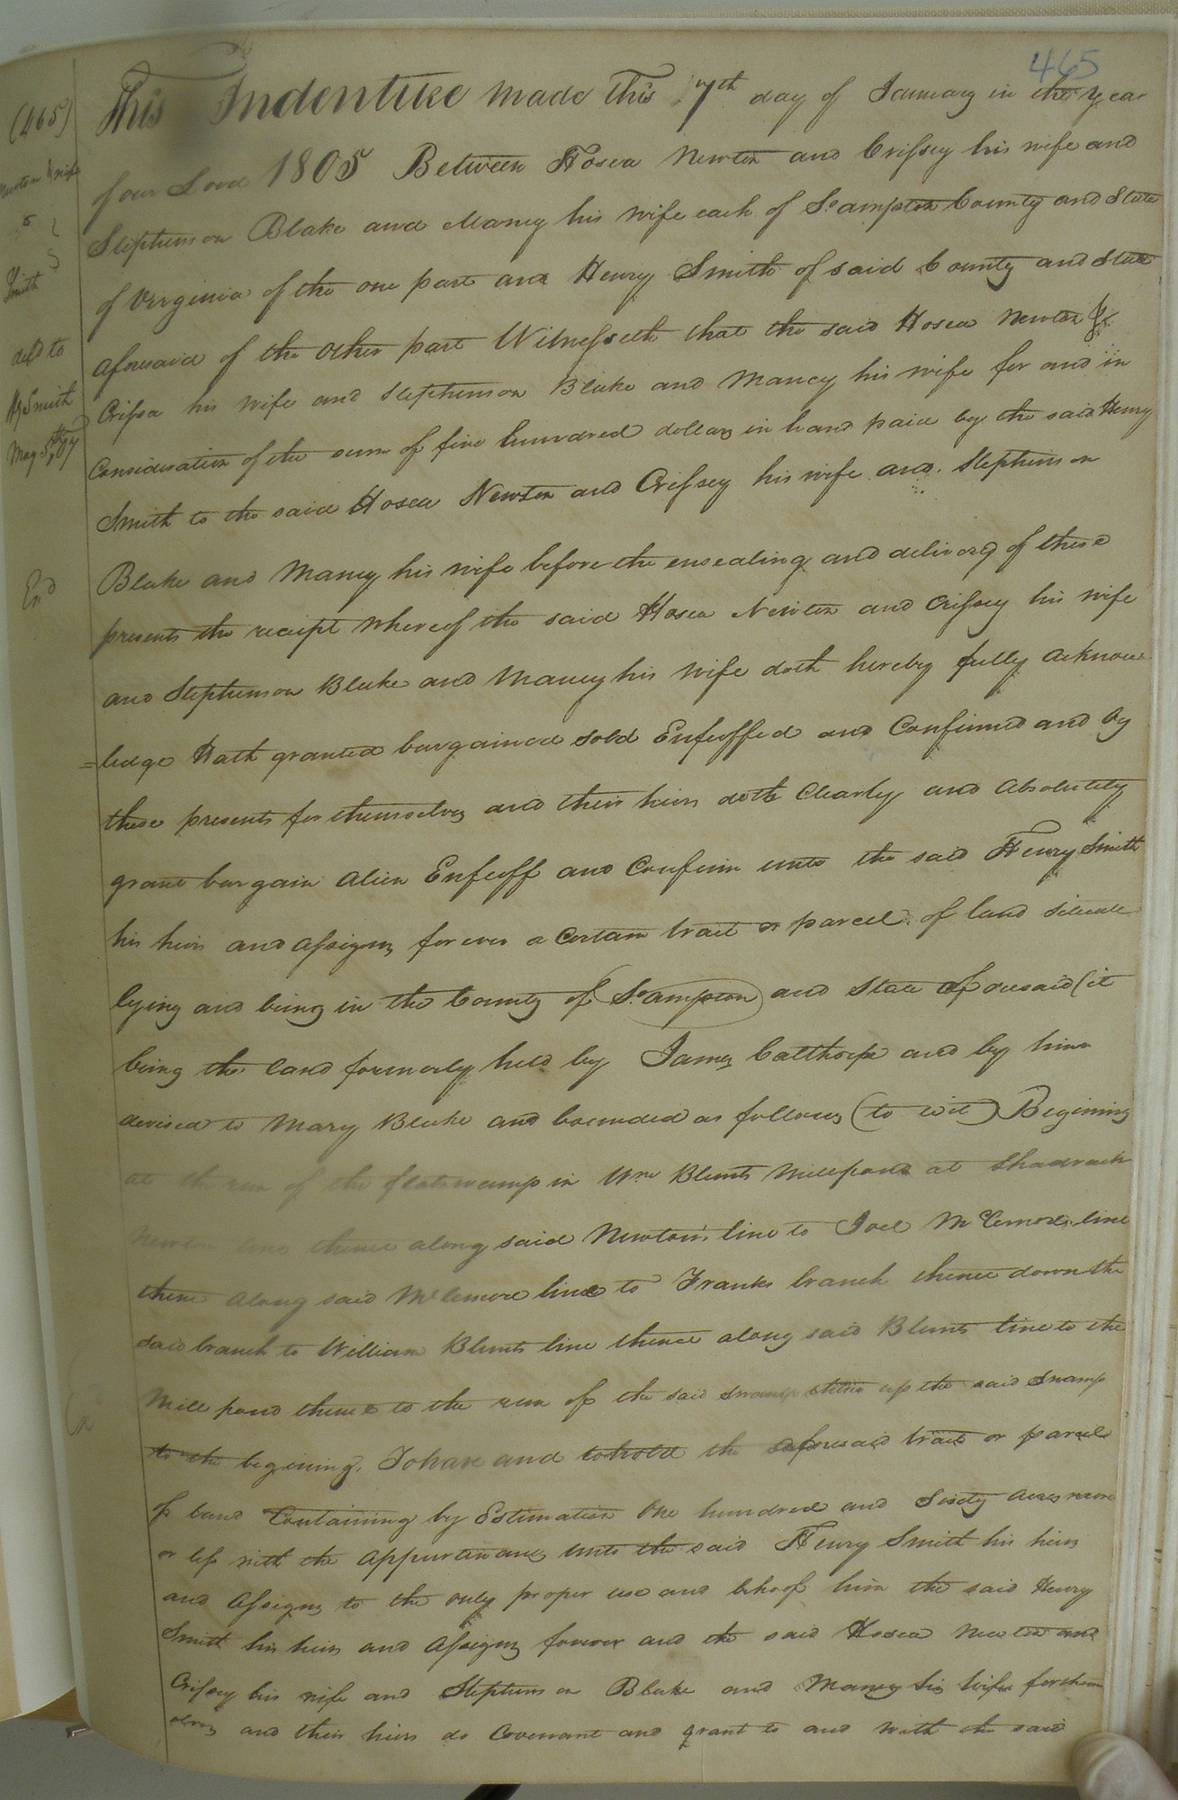 465
(465)
Newton & wife
Smith
deld to
Hy Smith
May 5th 07
End
This Indenture made this 7th day of January in the year
of our Lord 1805 Between Hosea Newton and Crissey his wife and
Stephenson Blake and Mancy his wife each of So.ampton County and State
of Virginia of the one part and Henry Smith of said County and State
aforesaid of the other part Witnesseth that the said Hosea Newton &
Crissa his wife and Stephenson Blake and Mancy his wife for and in
Consideration of the sum of five hundred dollars in hand paid by the said Henry
Smith to the said Hosea Newton and Crissey his wife and Stephenson
Blake and Mancy his wife before the ensealing and delivery of these
presents the receipt whereof the said Hosea Newton and Crissey his wife
and Stephenson Blake and Mancy his wife doth hereby fully acknow
=ledge Hath granted bargained sold Enfeoffed and Confirmed and by
these presents for themselves and their heirs doth Clearly and Absolutely
grant bargain alien Enfeoff and Confirm unto the said Henry Smith
his heirs and assigns forever a certain tract or parcel of land situate
lying and being in the County of So.ampton and State aforesaid (it
being the land formerly held by James Calthorpe and by him
devised to Mary Blake and bounded as follows (to wit) Begining
at the run of the flatswamp in Wm Blunts Millpond at Shadrach
Newton line thence along said Newton's line to Joel McLemore line
thence along said McLemore line to Franks branch thence down the
said branch to William Blunts line thence along said Blunts line to the
Mill pond thence to the run of the said swamp thence up the said swamp
to the begining. To have and to hold the aforesaid tract or parcel
of land Containing by Estimation One hundred and Sixty acres more
or less with the appurtenances unto the said Henry Smith his heirs
and Assigns to the only proper use and behoof him the said Henry
Smith his heirs and Assigns forever and the said Hosea Newton and
Crissey his wife and Stephenson Blake and Mancy his Wife for them
selves and their heirs do Covenant and grant to and with the said